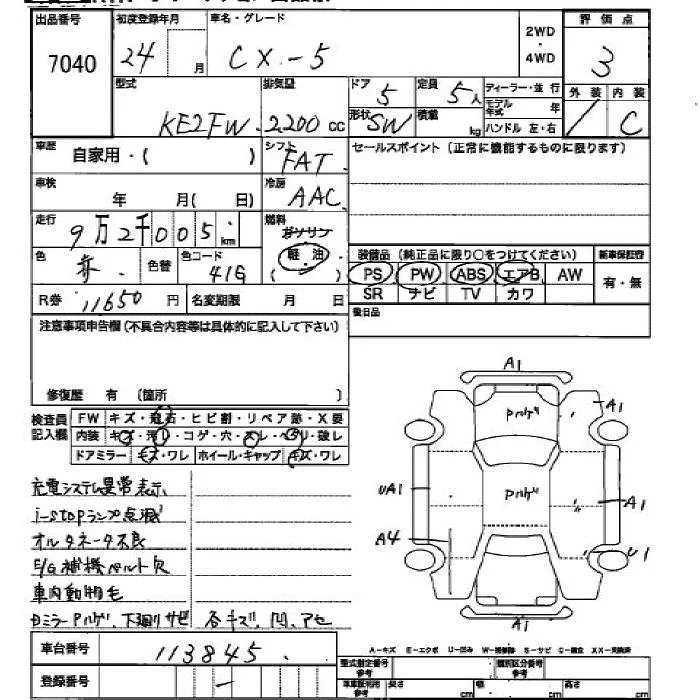 出品番号 初度登録年月 車名・グレード 2WD・4WD 評価点
7040 24 月 CX-5 3
型式 排気量 ドア 定員 ディーラー・並 行 外装 内装
KE2FW 2200 cc 5 5人 モデル年式 年 / C
形状 SW 積載 kg ハンドル 左・右
車歴 自家用・( ) シフト FAT セールスポイント (正常に機能するものに限ります)
車検 年 月( 日) 冷房 AAC
走行 9万2千005 km 燃料 ガソリン
色 赤 色替 色コード 41G 軽・油 装備品 (純正品に限り○をつけてください) 新車保証書
PS PW ABS エアB AW 有・無
R券 11650 円 名変期限 月 日 SR ナビ TV カワ
注意事項申告欄 (不具合内容等は具体的に記入して下さい) 後日品
修復歴 有 (箇所 )
検査員記入欄 FW キズ・飛石・ヒビ割・リペア跡・X要
内装 キズ・汚れ・コゲ・穴・スレ・ヘリ・破レ
ドアミラー キズ・ワレ ホイール・キャップ キズ・ワレ
A1
Pハゲ A1
UA1 Pハゲ A1
A4 U1
A1
充電システム異常表示
i-stopランプ点滅
オルタネータ不良
E/G補機ベルト欠
車内動物毛
Dミラー Pハゲ、下廻りサビ 各キズ、凹、アセ
A-キズ E-エクボ U-凹み W-補修跡 S-サビ C-腐食 XX-交換済
車台番号 113845 型式指定番号 参考 類別区分番号 参考
登録番号 - 車車証明用 参考 長さ cm 幅 cm 高さ cm